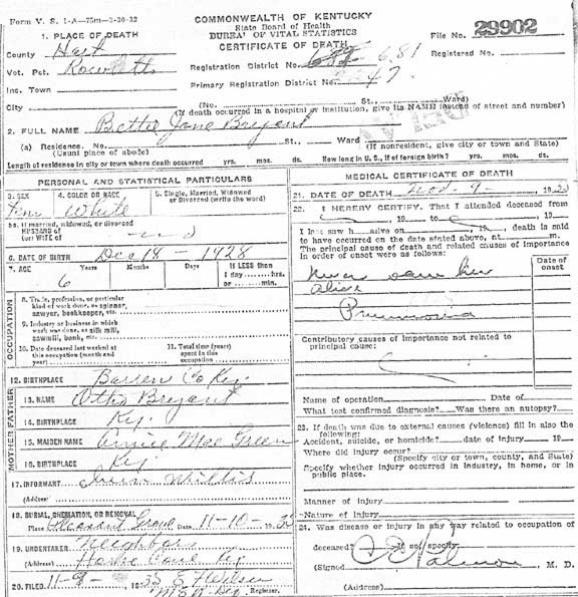 Form V. S. 1-A—75m—3-30-32
COMMONWEALTH OF KENTUCKY
State Board of Health
BUREAU OF VITAL STATISTICS
CERTIFICATE OF DEATH
File No. 29902
Registered No.
1. PLACE OF DEATH
County Hart
Vot. Pct. Rowletts
Inc. Town
City
Registration District No. 681
Primary Registration District No.
(No. St., Ward)
(If death occurred in a hospital or institution, give its NAME instead of street and number)
2. FULL NAME Bettie Jane Bryant
(a) Residence. No. St., Ward
(Usual place of abode) (If nonresident, give city or town and State)
Length of residence in city or town where death occurred yrs. mos. ds. How long in U. S., if of foreign birth? yrs. mos. ds.
PERSONAL AND STATISTICAL PARTICULARS
3. SEX 4. COLOR OR RACE 5. Single, Married, Widowed
or Divorced (write the word)
Fem White
5a. If married, widowed, or divorced
HUSBAND of
(or) WIFE of
6. DATE OF BIRTH Dec 18 - 1928
7. AGE Years Months Days If LESS than
1 day hrs.
or min.
6
OCCUPATION
8. Trade, profession, or particular
kind of work done, as spinner,
sawyer, bookkeeper, etc.
9. Industry or business in which
work was done, as silk mill,
sawmill, bank, etc.
10. Date deceased last worked at
this occupation (month and
year)
11. Total time (years)
spent in this
occupation
12. BIRTHPLACE Barren Co Ky.
MOTHER FATHER
13. NAME Otho Bryant
14. BIRTHPLACE Ky.
15. MAIDEN NAME Mae Green
16. BIRTHPLACE Ky
17. INFORMANT Willis
(Address)
18. BURIAL, CREMATION, OR REMOVAL
Place Pleasant Grove Date 11-10-, 1935
19. UNDERTAKER Neighbors
(Address) Horse Cave Ky
20. FILED 11-9-, 1935
Registrar.
MEDICAL CERTIFICATE OF DEATH
21. DATE OF DEATH Nov. 9 -, 1935
22. I HEREBY CERTIFY, That I attended deceased from
, 19 , to , 19
I last saw h alive on , 19 , death is said
to have occurred on the date stated above, at m.
The principal cause of death and related causes of importance
in order of onset were as follows:
Date of
onset
Never saw her
alive
Pneumonia
Contributory causes of importance not related to
principal cause:
Name of operation Date of
What test confirmed diagnosis? Was there an autopsy?
23. If death was due to external causes (violence) fill in also the
following:
Accident, suicide, or homicide? date of injury 19
Where did injury occur?
(Specify city or town, county, and State)
Specify whether injury occurred in industry, in home, or in
public place.
Manner of injury
Nature of injury
24. Was disease or injury in any way related to occupation of
deceased? If so, specify
(Signed) , M. D.
(Address)